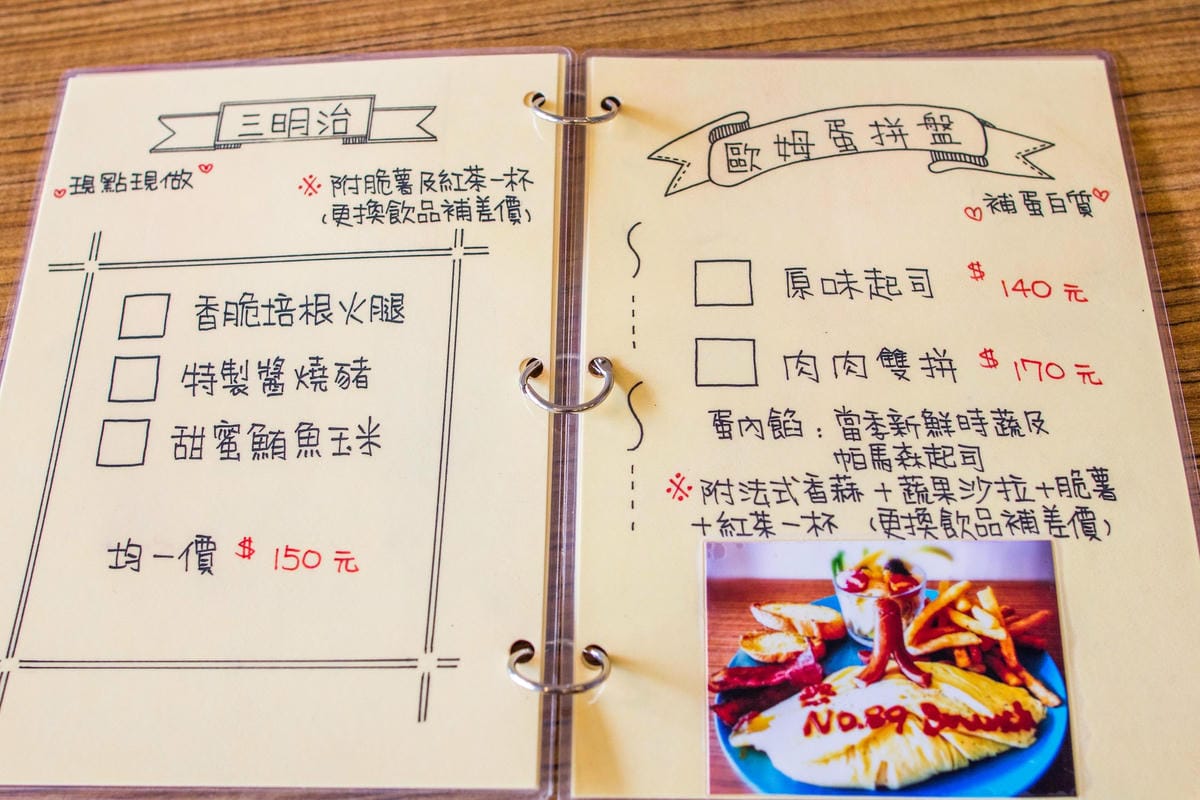 三明治
現點現做
※ 附脆薯及紅茶一杯
(更換飲品補差價)
香脆培根火腿
特製醬燒豬
甜蜜鮪魚玉米
均一價 $ 150 元
歐姆蛋拼盤
補蛋白質
原味起司 $ 140 元
肉肉雙拼 $ 170 元
蛋內餡：當季新鮮時蔬及
帕馬森起司
※ 附法式香蒜＋蔬果沙拉＋脆薯
＋紅茶一杯 (更換飲品補差價)
No.89 Brunch